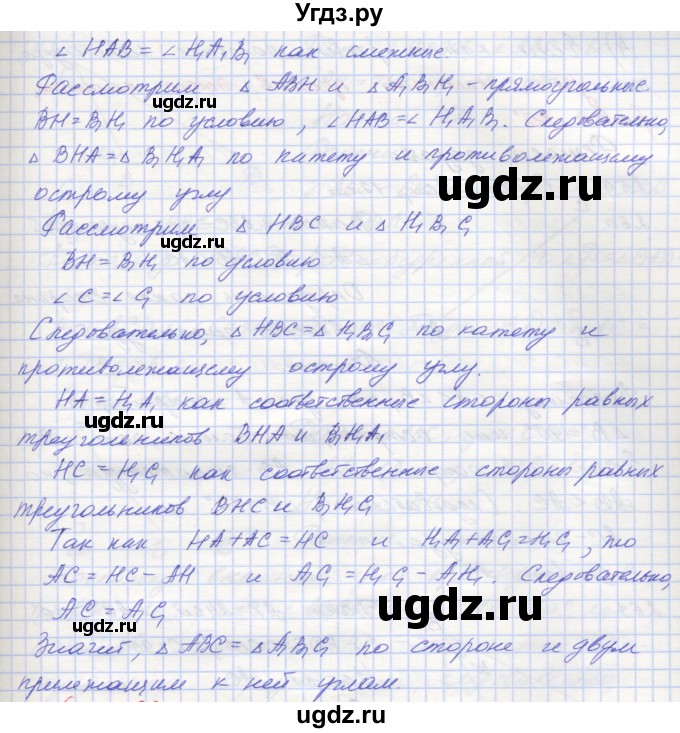 Угдз.ру
∠ HAB = ∠ H₁A₁B₁ как смежные.
Рассмотрим △ ABH и △ A₁B₁H₁ - прямоугольные
BH = B₁H₁ по условию, ∠ HAB = ∠ H₁A₁B₁. Следовательно,
△ BHA = △ B₁H₁A₁ по катету и противолежащему
острому углу
Рассмотрим △ HBC и △ H₁B₁C₁
BH = B₁H₁ по условию
∠ C = ∠ C₁ по условию
Следовательно, △ HBC = △ H₁B₁C₁ по катету и
противолежащему острому углу.
HA = H₁A₁ как соответственные стороны равных
треугольников BHA и B₁H₁A₁
HC = H₁C₁ как соответственные стороны равных
треугольников BHC и B₁H₁C₁
Так как HA + AC = HC и H₁A₁ + A₁C₁ = H₁C₁, то
AC = HC - AH и A₁C₁ = H₁C₁ - A₁H₁. Следовательно,
AC = A₁C₁
Значит, △ ABC = △ A₁B₁C₁ по стороне и двум
прилежащим к ней углам.
ugdz.ru
ugdz.ru
ugdz.ru
ugdz.ru
ugdz.ru
ugdz.ru
ugdz.ru
ugdz.ru
ugdz.ru
ugdz.ru